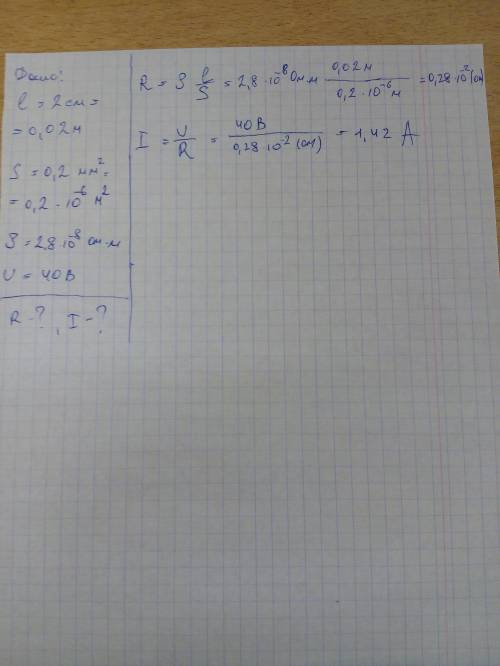 Дано:
l = 2 см =
= 0,02 м
S = 0,2 мм² =
= 0,2 · 10⁻⁶ м²
ρ = 2,8 · 10⁻⁸ Ом·м
U = 40 В
R - ? , I - ?
R = ρ l/S = 2,8 · 10⁻⁸ Ом·м 0,02 м / 0,2 · 10⁻⁶ м = 0,28 · 10⁻² (Ом)
I = U/R = 40 В / 0,28 · 10⁻² (Ом) = 1,42 А